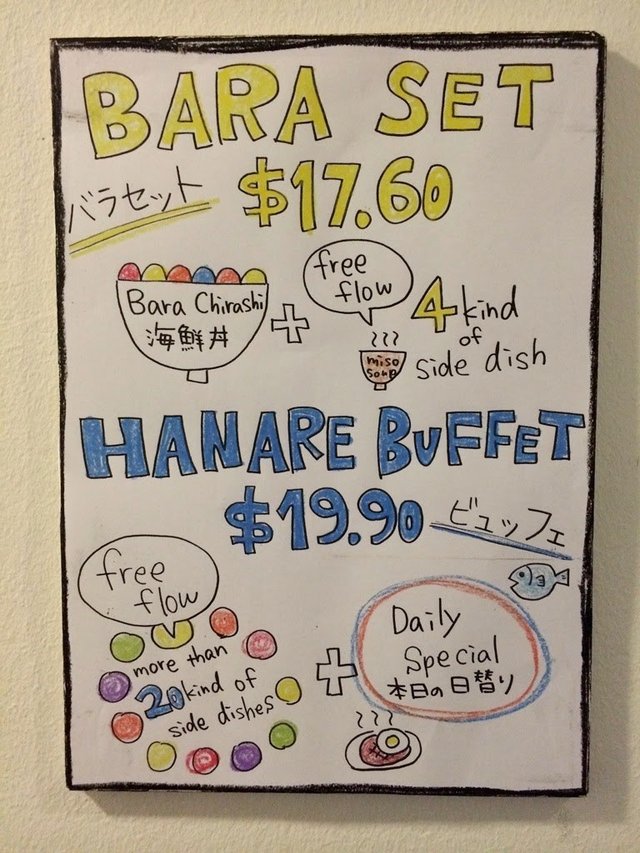 BARA SET
バラセット $17.60
Bara Chirashi
海鮮丼
+
free
flow
miso
soup
4 kind
of
side dish
HANARE BUFFET
$19.90 ビュッフェ
free
flow
more than
20 kind of
side dishes
+
Daily
Special
本日の日替り